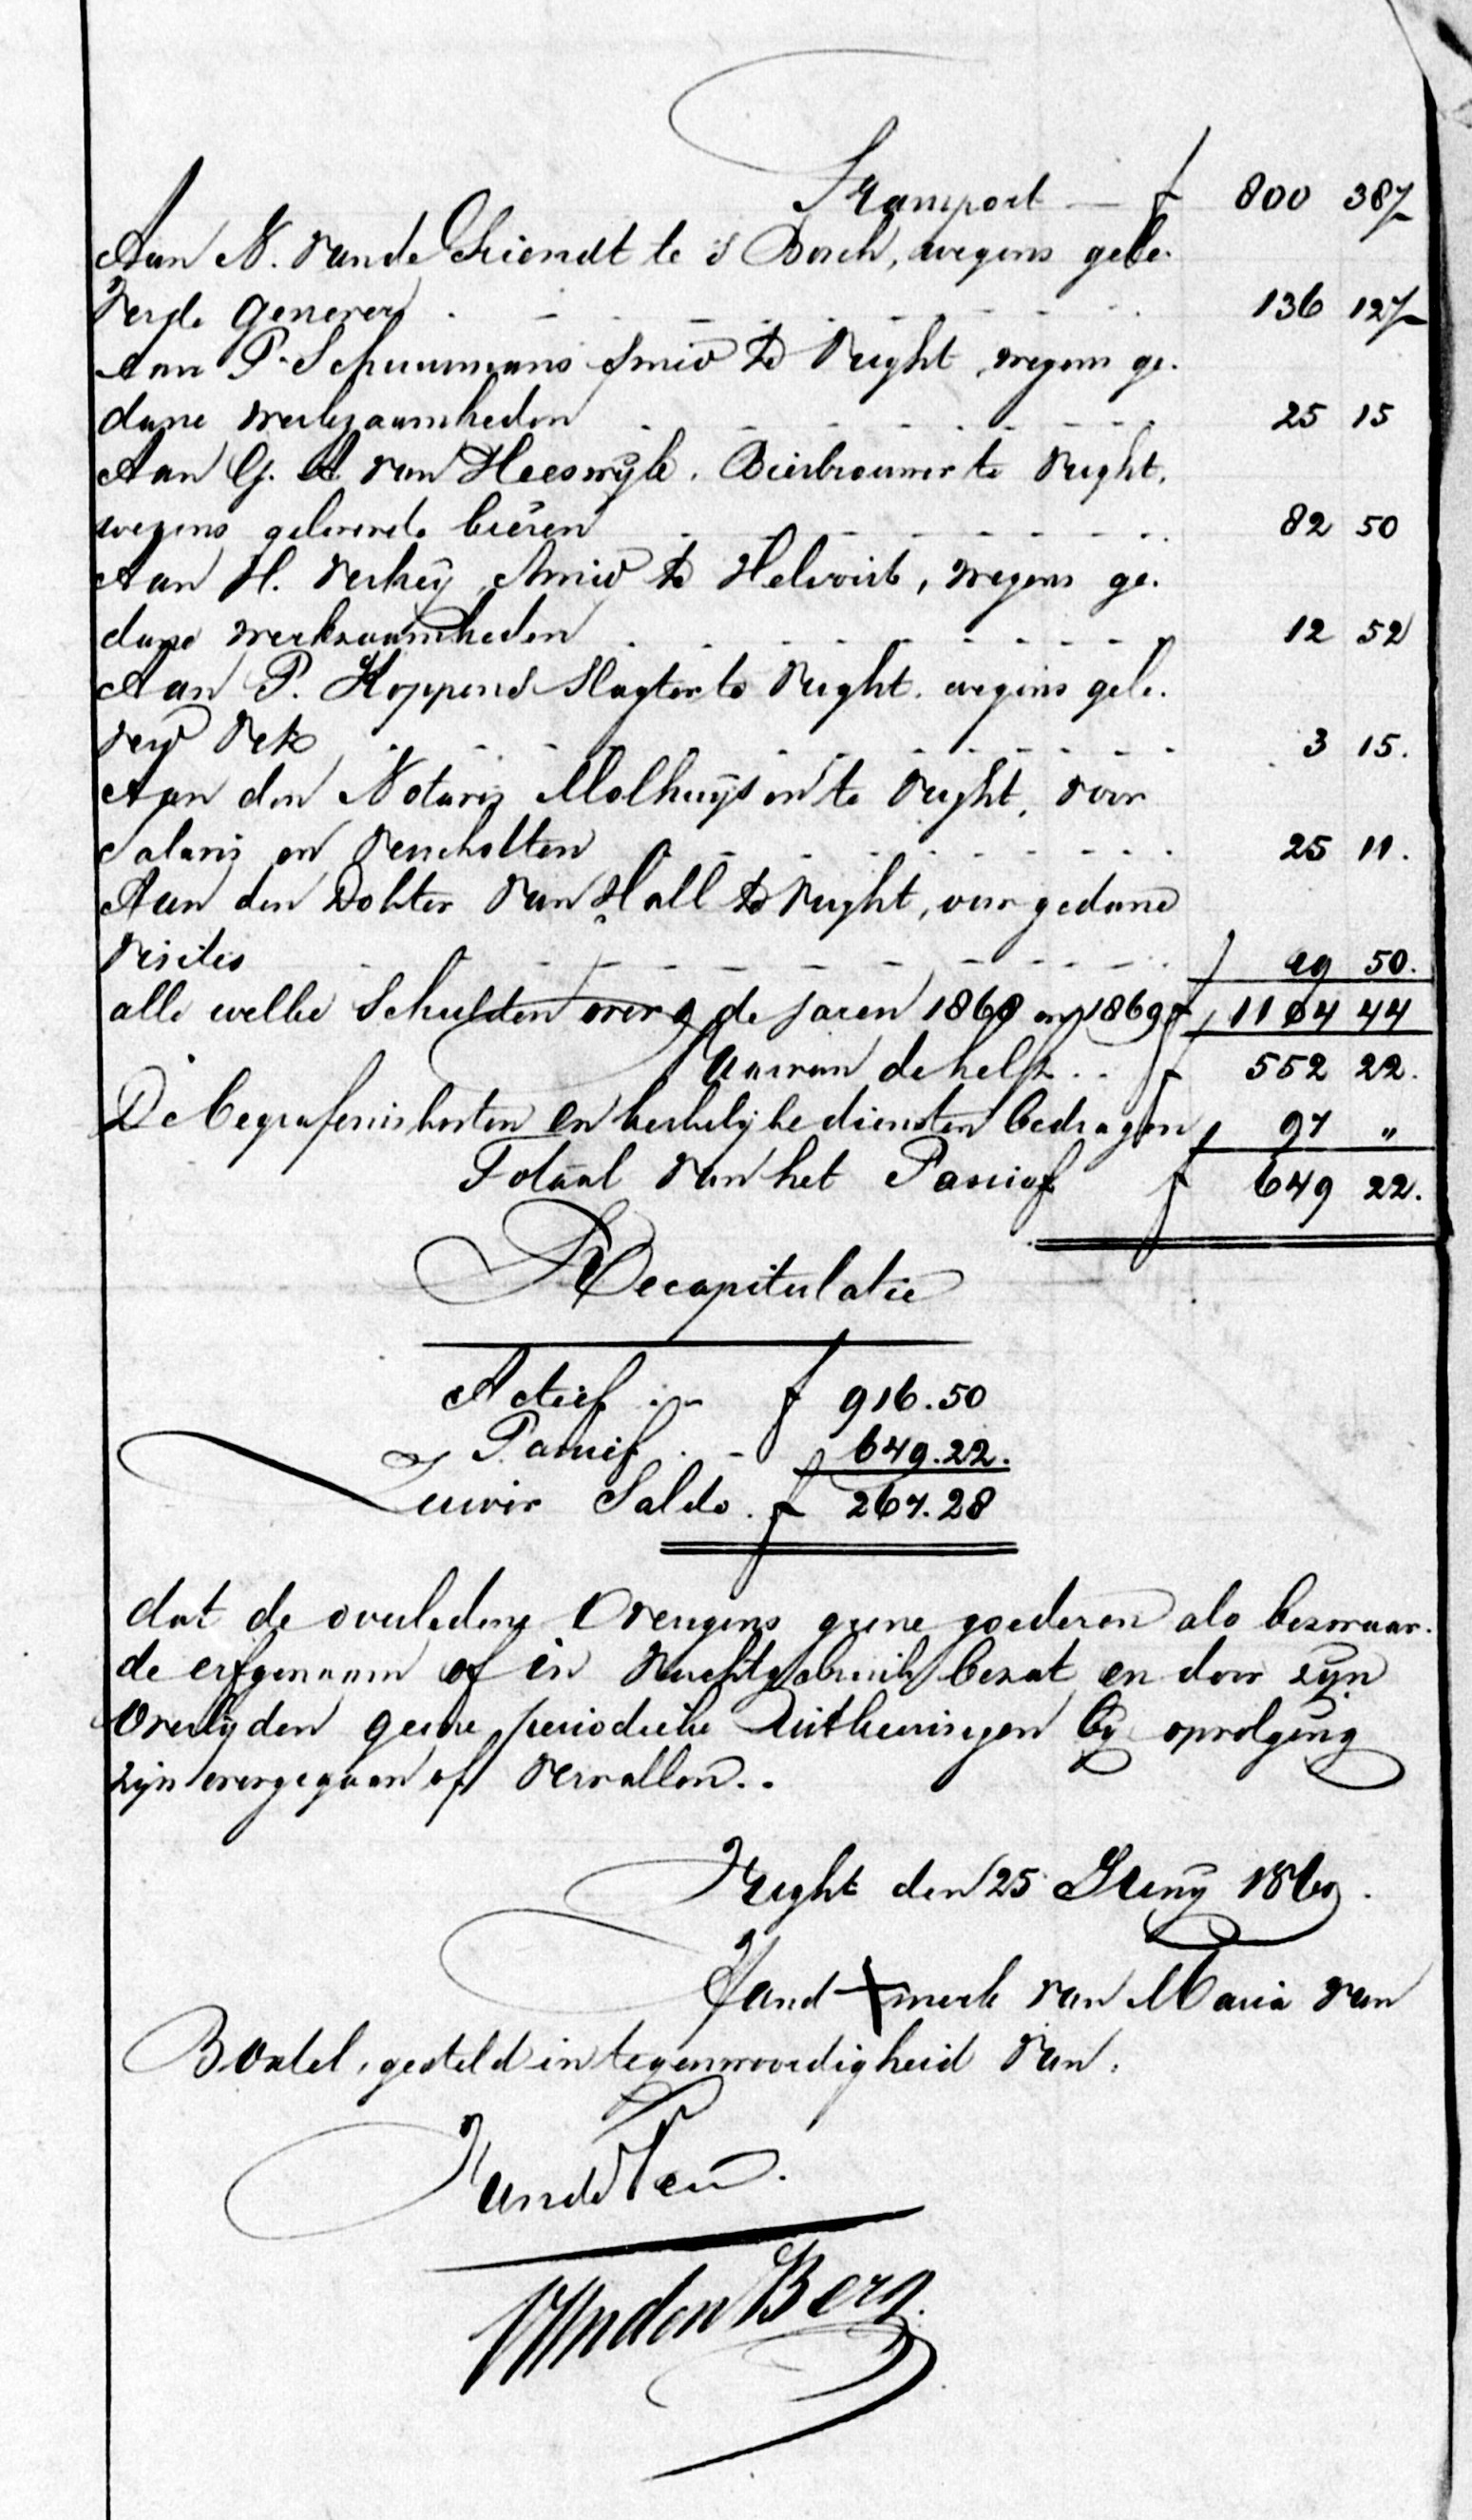 Transport — f 800 38⁷
Aan N. van de Griendt te 's Bosch, wegens gele-
verde genever . - . - . - . - 136 12⁷
Aan P. Schuurmans Smid te Vught, wegens ge-
dane werkzaamheden - . - . - . 25 15
Aan G. A van Heeswijk, Bierbrouwer te Vught,
wegens geleverde bieren - . - . - 82 50
Aan H. Verheij, Smid te Helvoirt, wegens ge-
dane werkzaamheden . - . - . - 12 52
Aan P. Koppens Slagter te Vught, wegens gele-
verd Vet . - . - . - . - 3 15.
Aan den Notaris Molhuijsen te Vught, voor
Salaris en verschotten - . - . - 25 11.
Aan den Dokter van Hall te Vught, voor gedane
visites - - - - - - f 19 50.
alle welke Schulden over de jaren 1868 en 1869 f 1104 44
Waarvan de helft . . f 552 22.
De begrafeniskosten en kerkelijke diensten bedragen f 97 „
Totaal van het Passief f 649 22.
Recapitulatie
Actief . - f 916.50
Passief . - f 649.22.
Zuiver Saldo . f 267.28
dat de overledene overigens geene goederen als bezwaar-
de erfgenaam of in vruchtgebruik bezat en door zijn
overlijden geene periodieke Uitkeeringen bij opvolging
zijn overgegaan of vervallen..
Vught den 25 Junij 1869.
Hand X merk van Maria van
Boxtel, gesteld in tegenwoordigheid van:
van den Berg.